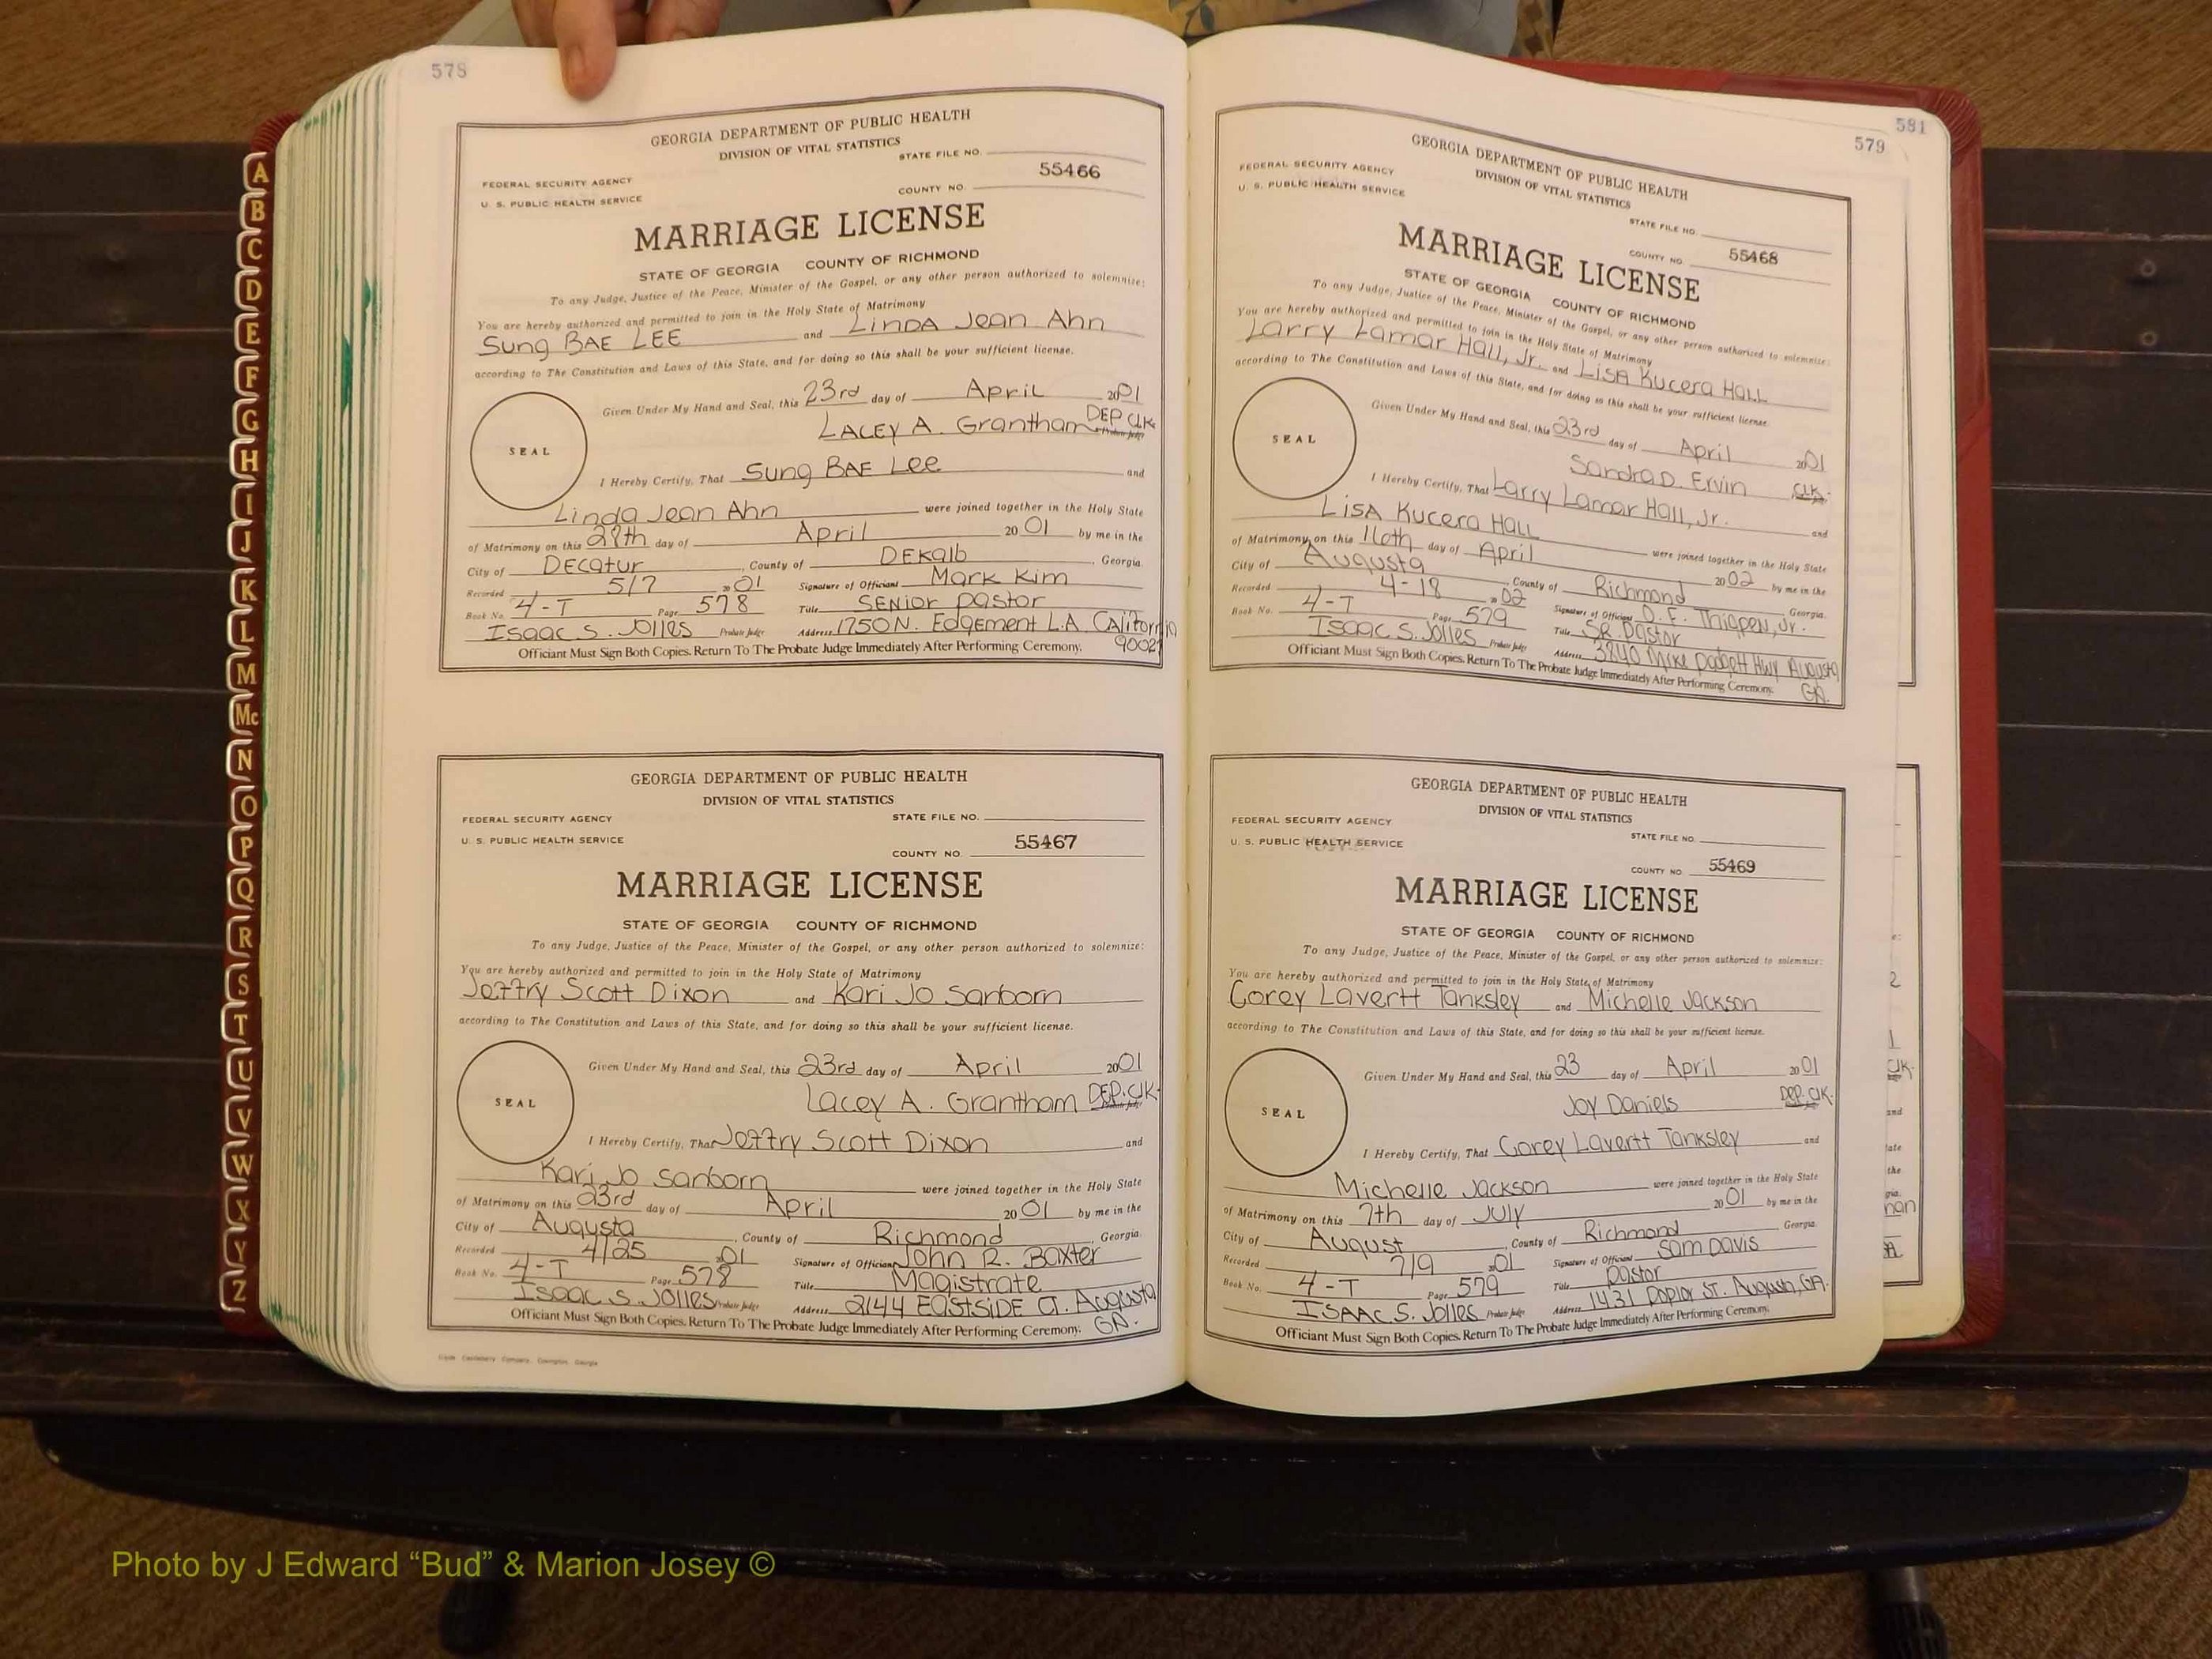 578
GEORGIA DEPARTMENT OF PUBLIC HEALTH
DIVISION OF VITAL STATISTICS
STATE FILE NO.
FEDERAL SECURITY AGENCY
U. S. PUBLIC HEALTH SERVICE
COUNTY NO. 55466
MARRIAGE LICENSE
STATE OF GEORGIA COUNTY OF RICHMOND
To any Judge, Justice of the Peace, Minister of the Gospel, or any other person authorized to solemnize:
You are hereby authorized and permitted to join in the Holy State of Matrimony
Sung BAE LEE and LINDA Jean Ahn
according to The Constitution and Laws of this State, and for doing so this shall be your sufficient license.
Given Under My Hand and Seal, this 23rd day of April 2001
LACEY A. Grantham DEP CLK
SEAL
I Hereby Certify, That Sung BAE Lee and
Linda Jean Ahn were joined together in the Holy State
of Matrimony on this 27th day of April 2001 by me in the
City of Decatur, County of DEKalb, Georgia.
Recorded 5/7 2001 Signature of Officiant Mark Kim
Book No. 4-T Page 578 Title SENior pastor
Isaac S. Jolles Probate Judge Address 1750 N. Edgement L.A. California
90027
Officiant Must Sign Both Copies. Return To The Probate Judge Immediately After Performing Ceremony.
GEORGIA DEPARTMENT OF PUBLIC HEALTH
DIVISION OF VITAL STATISTICS
FEDERAL SECURITY AGENCY STATE FILE NO.
U. S. PUBLIC HEALTH SERVICE
COUNTY NO. 55467
MARRIAGE LICENSE
STATE OF GEORGIA COUNTY OF RICHMOND
To any Judge, Justice of the Peace, Minister of the Gospel, or any other person authorized to solemnize:
You are hereby authorized and permitted to join in the Holy State of Matrimony
Jeffry Scott Dixon and Kari Jo Sanborn
according to The Constitution and Laws of this State, and for doing so this shall be your sufficient license.
Given Under My Hand and Seal, this 23rd day of April 2001
Lacey A. Grantham DEP. CLK.
SEAL
I Hereby Certify, That Jeffry Scott Dixon and
Kari Jo Sanborn were joined together in the Holy State
of Matrimony on this 23rd day of April 2001 by me in the
City of Augusta, County of Richmond, Georgia.
Recorded 4/25 2001 Signature of Officiant John R. Baxter
Book No. 4-T Page 578 Title Magistrate
Isaac S. Jolles Probate Judge Address 2144 EastSIDE Ct. Augusta
GA.
Officiant Must Sign Both Copies. Return To The Probate Judge Immediately After Performing Ceremony.
581
579
GEORGIA DEPARTMENT OF PUBLIC HEALTH
DIVISION OF VITAL STATISTICS
FEDERAL SECURITY AGENCY
U. S. PUBLIC HEALTH SERVICE
STATE FILE NO.
COUNTY NO. 55468
MARRIAGE LICENSE
STATE OF GEORGIA COUNTY OF RICHMOND
To any Judge, Justice of the Peace, Minister of the Gospel, or any other person authorized to solemnize:
You are hereby authorized and permitted to join in the Holy State of Matrimony
Larry Lamar Hall, Jr. and LISA Kucera HALL
according to The Constitution and Laws of this State, and for doing so this shall be your sufficient license.
Given Under My Hand and Seal, this 23rd day of April 2001
Sandra D. Ervin CLK.
SEAL
I Hereby Certify, That Larry Lamar Hall, Jr. and
LISA Kucera HALL were joined together in the Holy State
of Matrimony on this 16th day of April 2002 by me in the
City of Augusta, County of Richmond, Georgia.
Recorded 4-18 2002 Signature of Officiant D. E. Thigpen, Jr.
Book No. 4-T Page 579 Title SR. pastor
Isaac S. Jolles Probate Judge Address 3840 Mike Padgett Hwy Augusta
GA.
Officiant Must Sign Both Copies. Return To The Probate Judge Immediately After Performing Ceremony.
GEORGIA DEPARTMENT OF PUBLIC HEALTH
DIVISION OF VITAL STATISTICS
FEDERAL SECURITY AGENCY
U. S. PUBLIC HEALTH SERVICE
STATE FILE NO.
COUNTY NO. 55469
MARRIAGE LICENSE
STATE OF GEORGIA COUNTY OF RICHMOND
To any Judge, Justice of the Peace, Minister of the Gospel, or any other person authorized to solemnize:
You are hereby authorized and permitted to join in the Holy State of Matrimony
Corey Lavertt Tanksley and Michelle Jackson
according to The Constitution and Laws of this State, and for doing so this shall be your sufficient license.
Given Under My Hand and Seal, this 23 day of April 2001
Joy Daniels DEP. CLK.
SEAL
I Hereby Certify, That Corey Lavertt Tanksley and
Michelle Jackson were joined together in the Holy State
of Matrimony on this 7th day of JULY 2001 by me in the
City of August, County of Richmond, Georgia.
Recorded 7/9 2001 Signature of Officiant Sam Davis
Book No. 4-T Page 579 Title pastor
ISAAC S. Jolles Probate Judge Address 1431 Poplar ST. Augusta, GA.
Officiant Must Sign Both Copies. Return To The Probate Judge Immediately After Performing Ceremony.
A
B
C
D
E
F
G
H
I
J
K
L
M
Mc
N
O
P
Q
R
S
T
U
V
W
X
Y
Z
Photo by J Edward “Bud” & Marion Josey ©